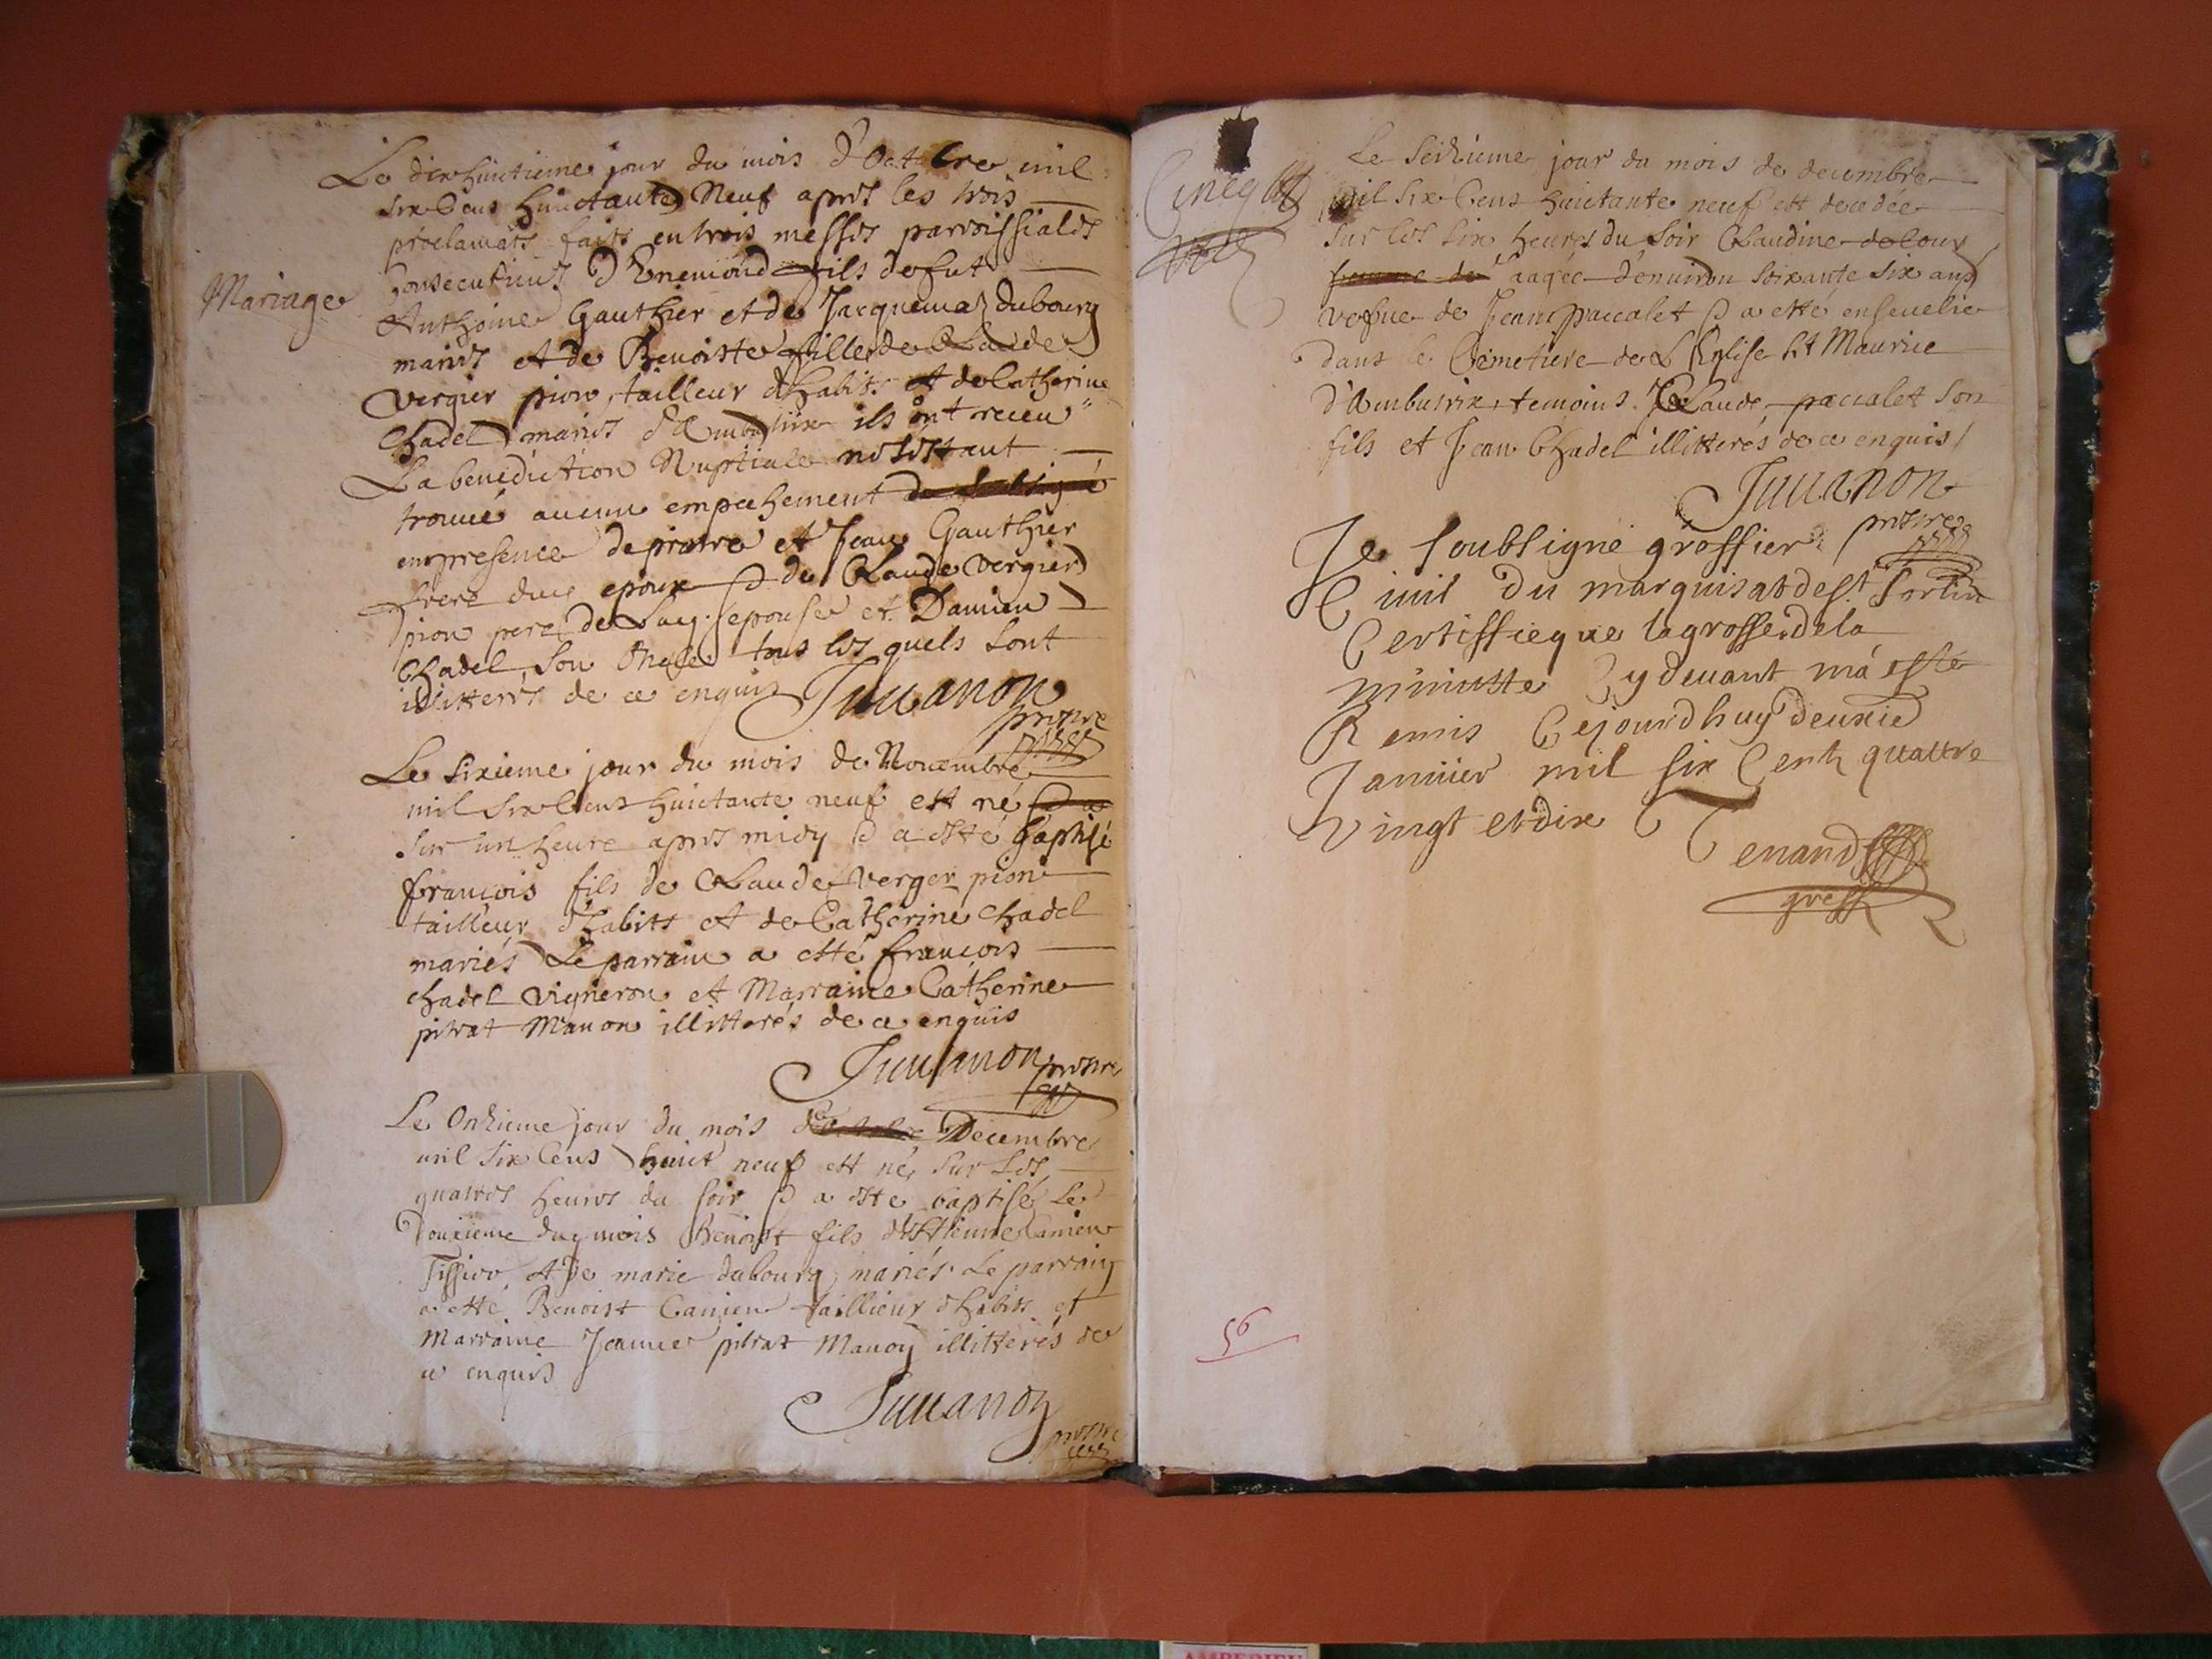 Le dixhuictieme jour du mois d'Octobre mil
six Cens huictante Neuf apres les trois
proclamats faits en trois messes parroissiales
Consecutives d'Enemond fils de fut
Mariage
Anthoine Gauthier et de Jacquema dubourg
mariés et de Benoiste fille de Claude
Vergier pion, tailleur d'habits et de Catherine
Chadel mariés d'Ambutrix ils ont receu
La benediction Nuptiale ne s'estant
trouvé aucun empechement
en presence de pierre et Jean Gauthier
frere dud epoux & de Claude Vergier
pion pere de Lad. epouse et Damien
Chadel son Oncle tous les quels sont
illitterés de ce enquis Juuanon
prestre
Le sixieme jour du mois de Nouembre
mil six Cens huictante neuf est né
sur un heure apres midy & a esté baptisé
françois fils de Claude Verger pion
tailleur d'habits et de Catherine Chadel
mariés Le parrain a esté françois
chadel vigneron et Marraine Catherine
pitrat Manon illitterés de ce enquis
Juuanon prestre
Le Onzieme jour du mois Decembre
mil six Cens huict neuf est né sur Les
quatres heures du soir & a esté baptisé Le
Douzieme dud mois Benoist fils d'Estienne Camien
Tissier et de marie dubourg mariés Le parrain
a esté Benoist Camien taillieur d'habits et
Marraine Jeanne pitrat Manon illitterés de
ce enquis
Juuanon
prestre
Le Seizieme jour du mois de decembre
Cinq
mil six Cens huictante neuf est decedée
sur les six heures du soir Claudine delour
femme de aagée d'enuiron soixante six ans
vefue de Jean paccalet & a esté enseuelie
dans le Cimetiere de L'Eglise St Maurice
d'Ambutrix, temoins Claude paccalet son
fils et Jean Chadel illitterés de ce enquis
Juuanon
prestre
Je soubsigné greffier
Ciuil du marquisat de St Sorlin
Certiffie que la grosse de la
minutte Cy deuant m'a esté
Remis Cejourdhuy deuxie
Januier mil six Cents quattre
Vingt et dix
Tenand
greff
56
AMBERIEU